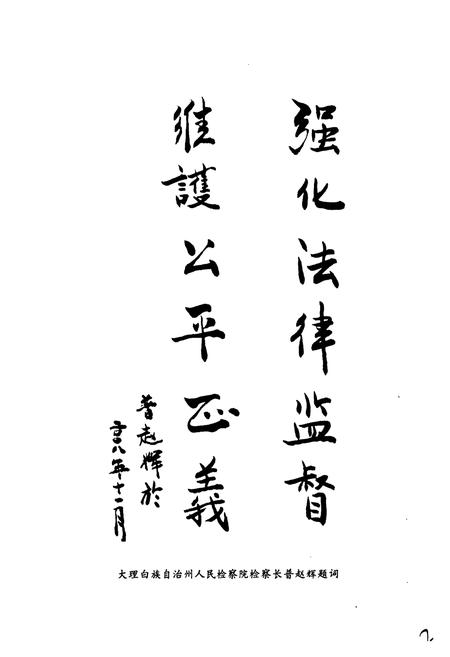 强化法律监督
维護公平正義
普赵辉於
二〇〇八年十一月
大理白族自治州人民检察院检察长普赵辉题词